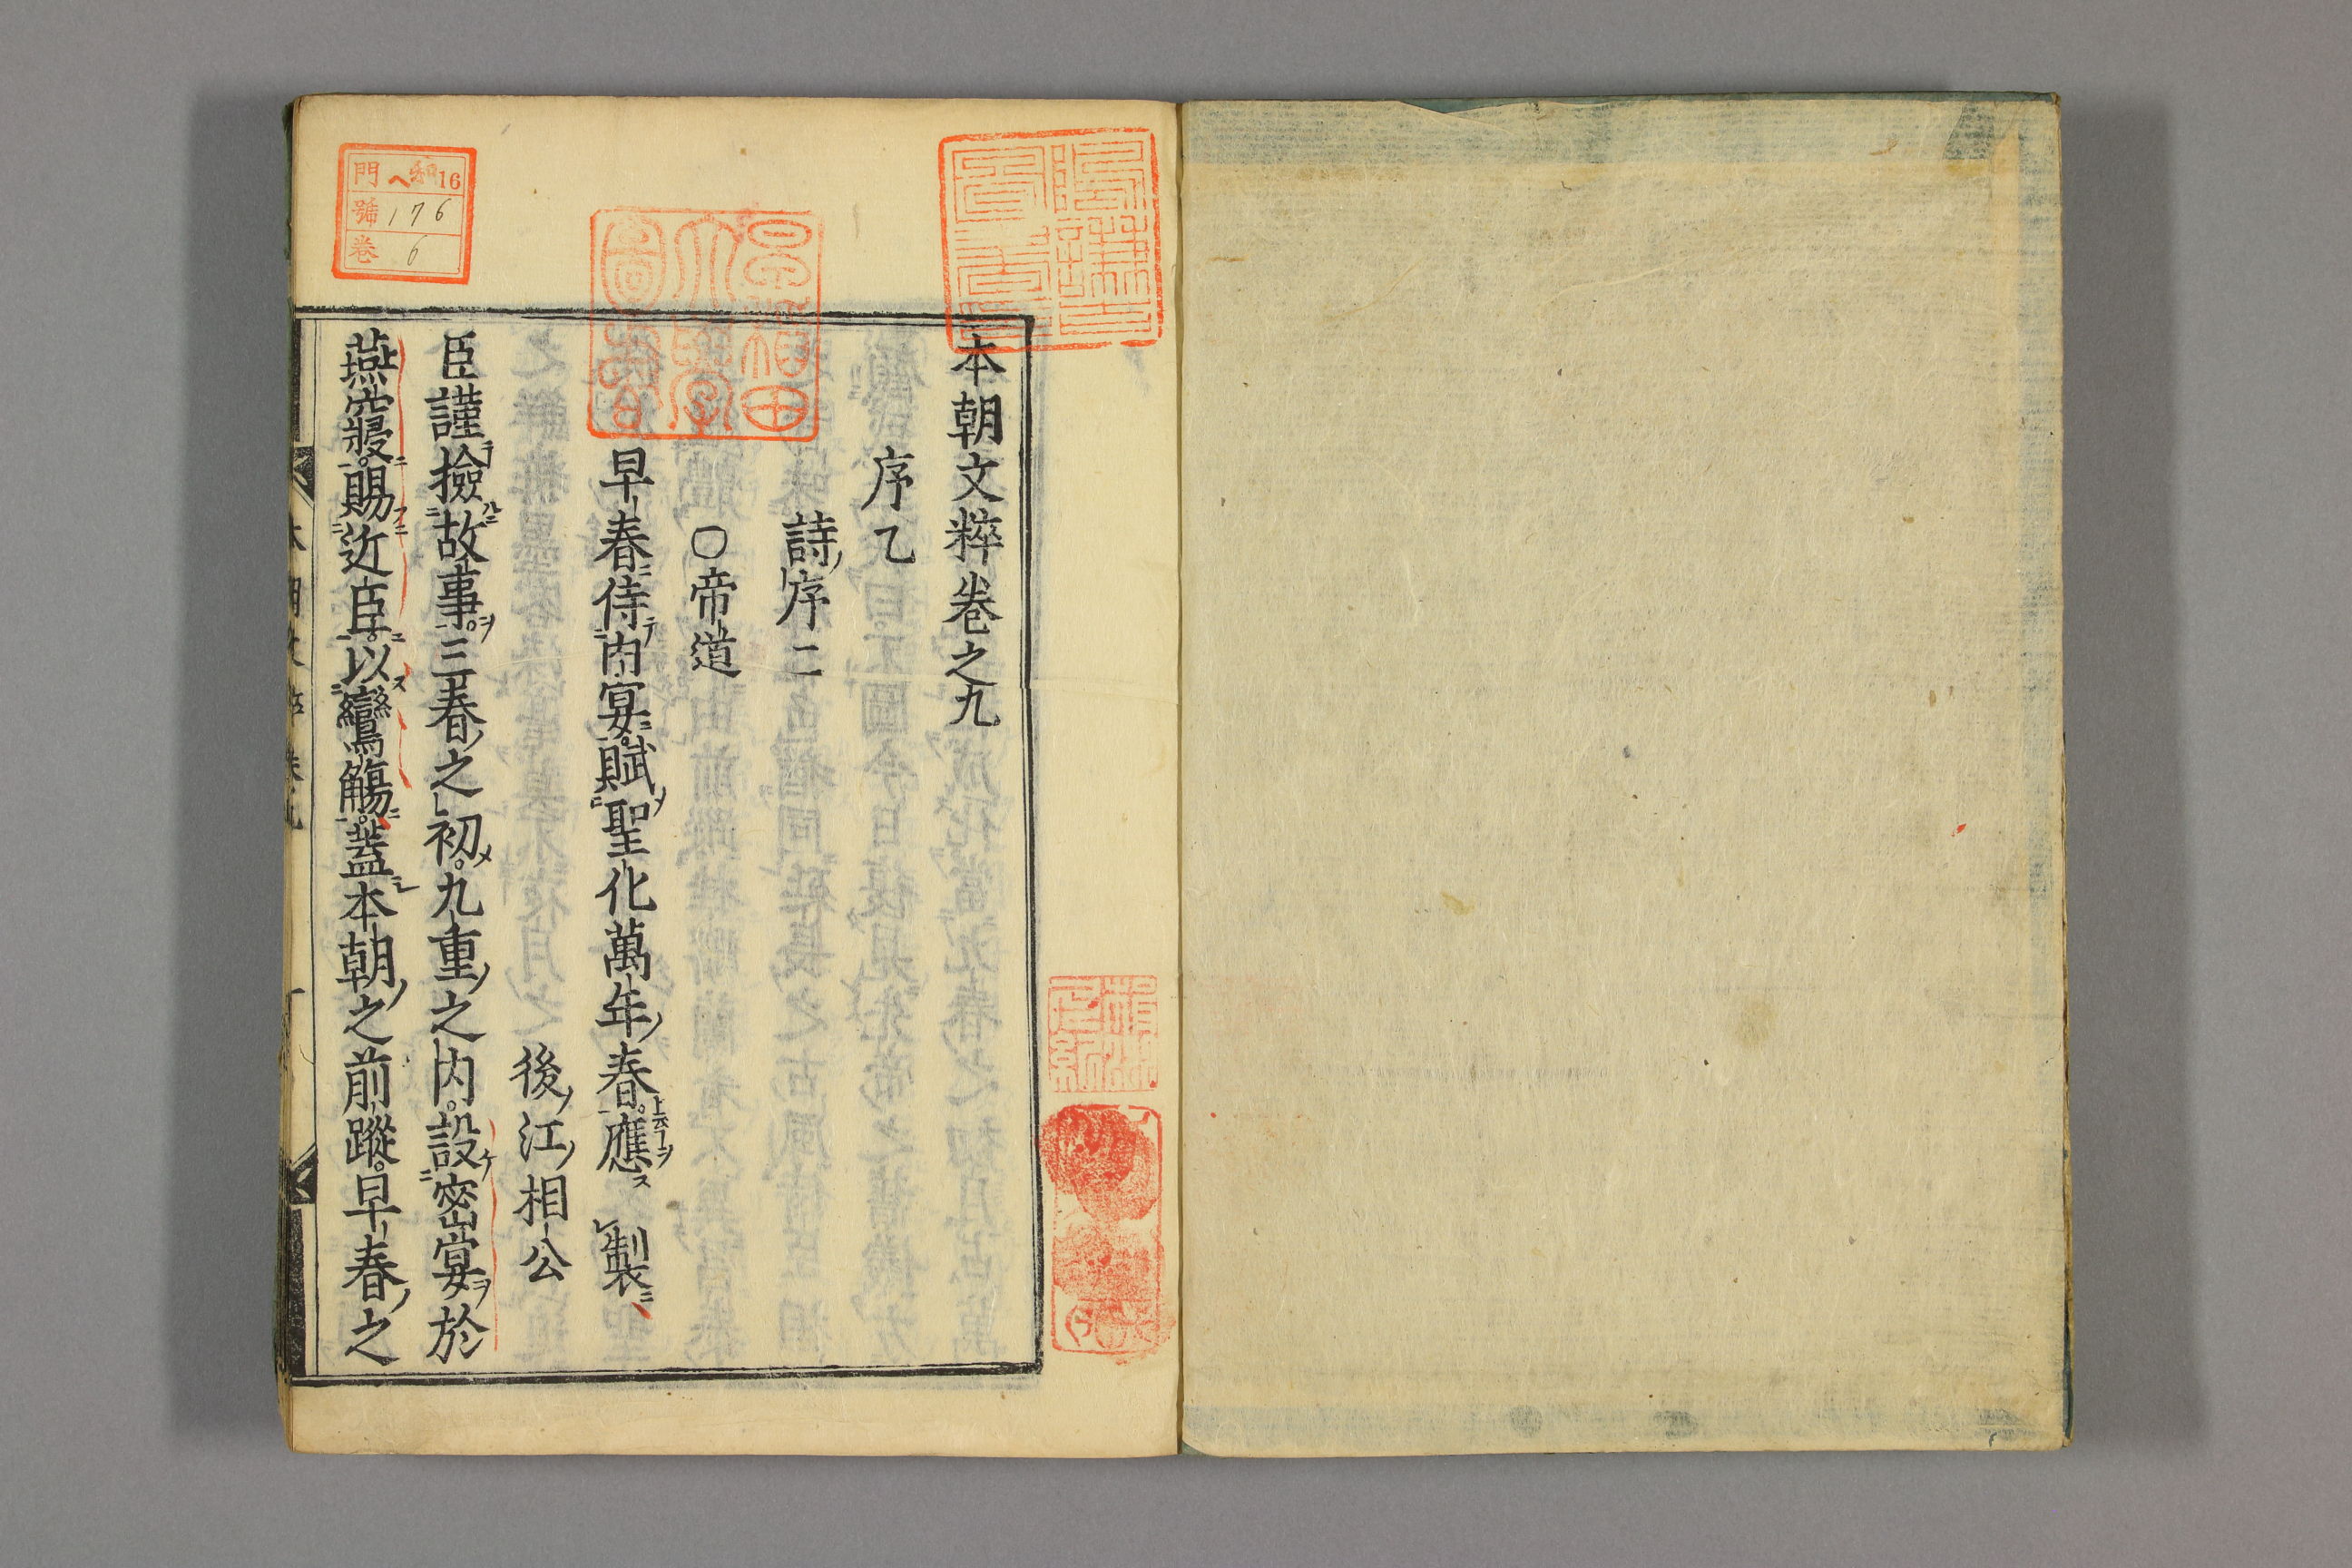 本朝文粹卷之九
序乙
詩序二
○帝道
早春侍内宴賦聖化萬年春應　製
後江相公
臣謹撿故事三春之初九重之内設密宴於
燕寢賜近臣以鸞觴蓋本朝之前蹤早春之
早稲田
大學
圖書
門 ヘ 16
號 176
卷 6